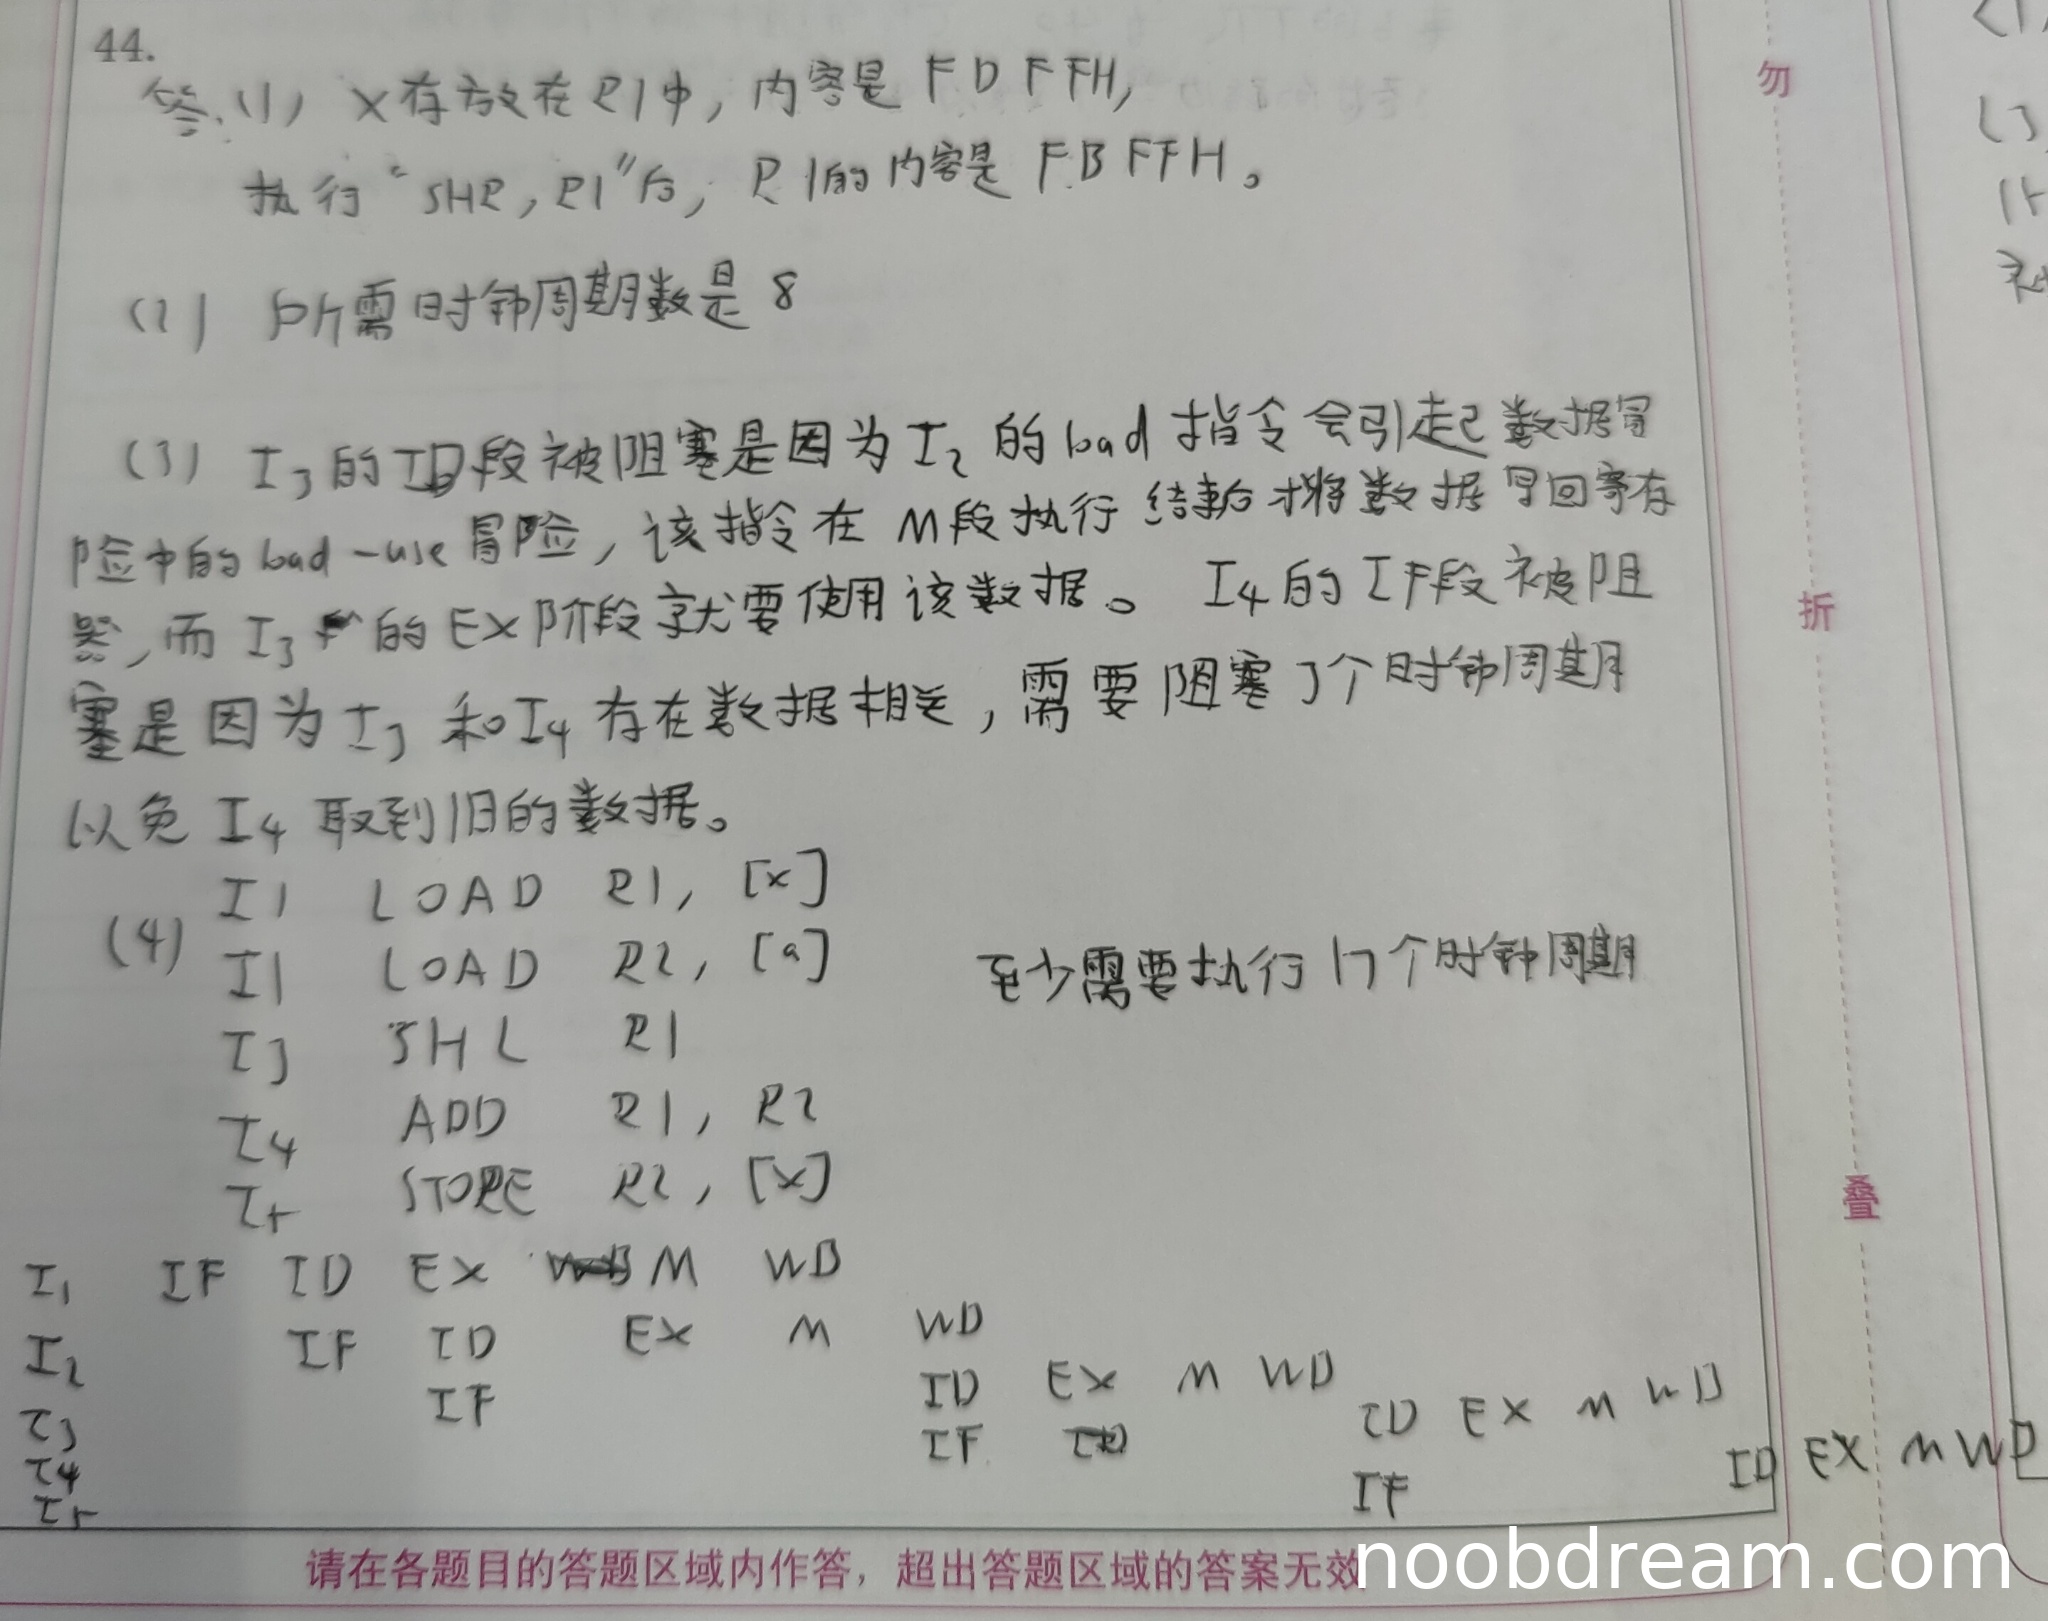 44.
答.(1) x存放在R1中，内容是FDFFH,
执行“SHR,R1”后，R1的内容是FBFFH。
(2) 所需时钟周期数是8
(3) I3的ID段被阻塞是因为I2的load指令会引起数据冒
险中的load-use冒险，该指令在M段执行结束后才将数据写回寄存
器，而I3的EX阶段就要使用该数据。I4的IF段被阻
塞是因为I3和I4存在数据相关，需要阻塞3个时钟周期
以免I4取到旧的数据。
I1 LOAD R1, [x]
(4) I1 LOAD R2, [a] 至少需要执行17个时钟周期
I3 SHL R1
I4 ADD R1, R2
I5 STORE R2, [x]
I1 IF ID EX M WB
I2 IF ID EX M WB
I3 IF ID EX M WB
I4 IF ID EX M WB
I5 IF ID EX M WB
请在各题目的答题区域内作答，超出答题区域的答案无效
勿
折
叠
noobdream.com